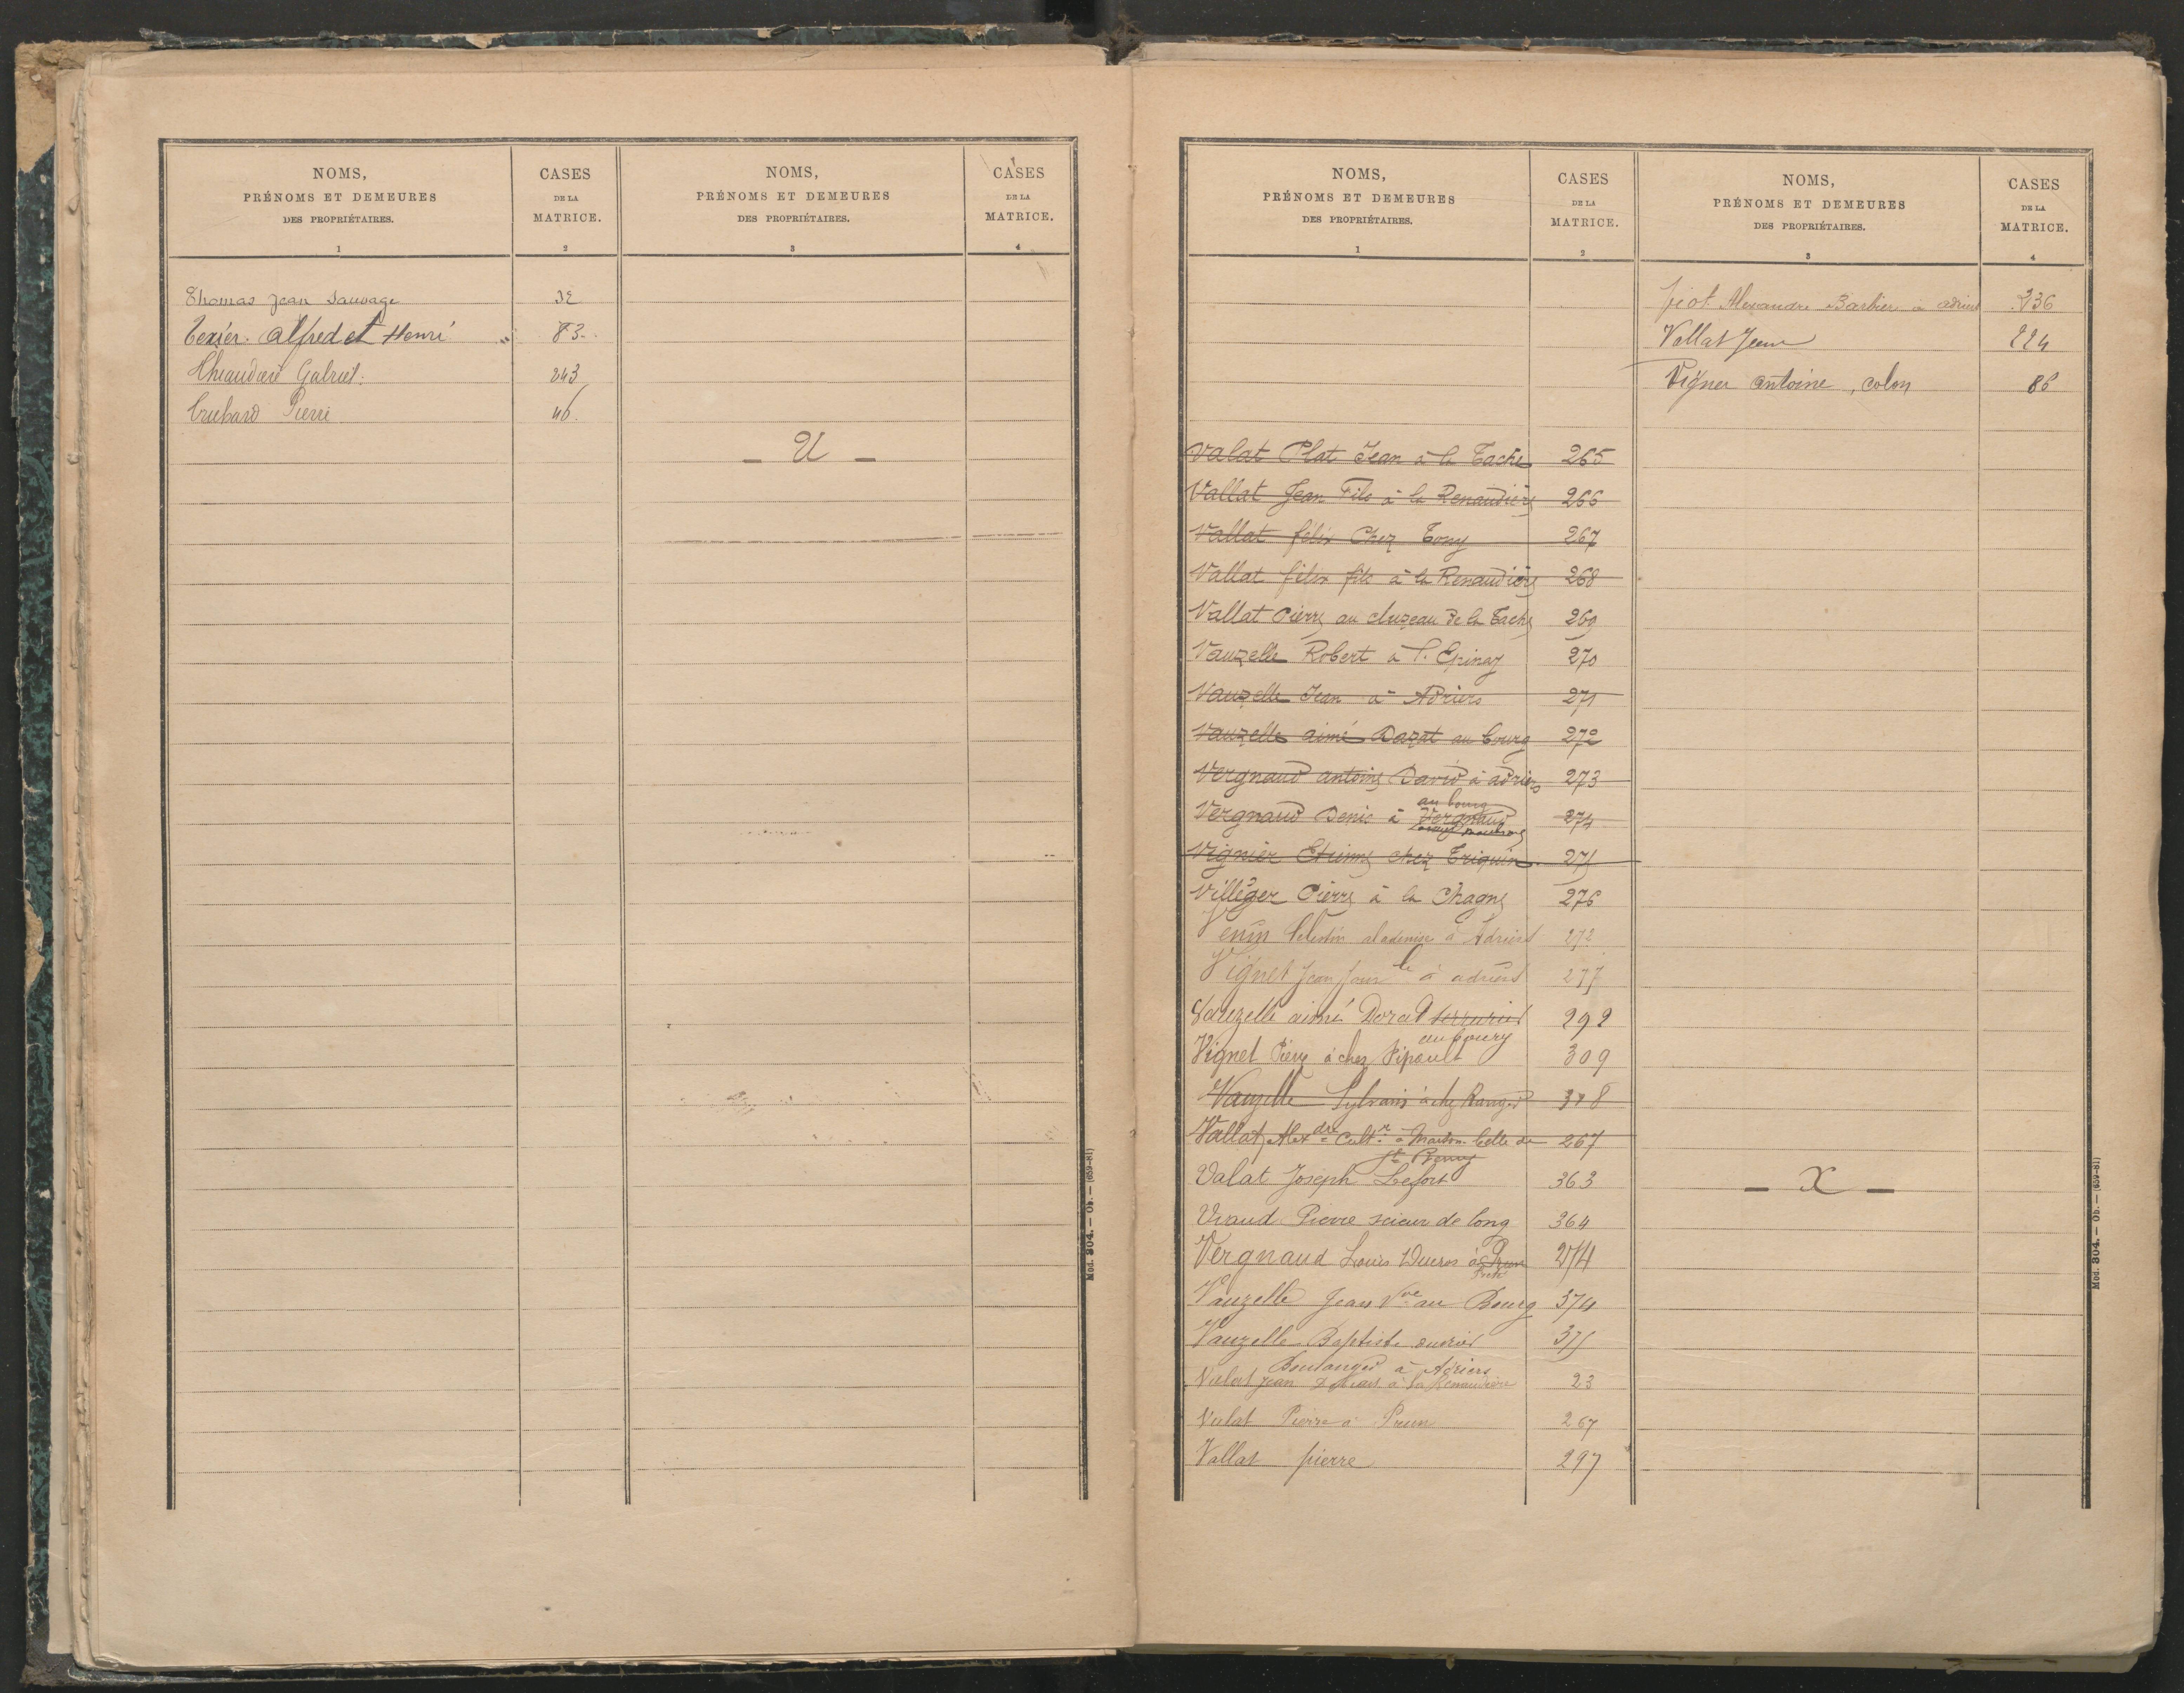 NOMS,
PRÉNOMS ET DEMEURES
DES PROPRIÉTAIRES.
1
CASES
DE LA
MATRICE.
2
NOMS,
PRÉNOMS ET DEMEURES
DES PROPRIÉTAIRES.
3
CASES
DE LA
MATRICE.
4
Thomas Jean Sauvage 32
Texier Alfred et Henri " 83
Thiaudière Gabriel 243
Truhard Pierre 46
- U -
Mod. 304. — Ob. — (659-81)
NOMS,
PRÉNOMS ET DEMEURES
DES PROPRIÉTAIRES.
1
CASES
DE LA
MATRICE.
2
NOMS,
PRÉNOMS ET DEMEURES
DES PROPRIÉTAIRES.
3
CASES
DE LA
MATRICE.
4
Valat Plat Jean à la Tache 265
Vallat Jean Fils à la Renaudière 266
Vallat félix Chez Tony 267
Vallat félix fils à la Renaudière 268
Vallat Pierre au cluzeau de la Tache 269
Vauzelle Robert à l'Epinay 270
Vauzelle Jean à Adriers 271
Vauzelle aimé Dazat au bourg 272
Vergnaud antoine David à adriers 273
au bourg
Vergnaud Denis à Vergnaud 274
Vignier Etienne chez Triquin 275
Villéger Pierre à la Chagne 276
Venin Célestin à Adriers 272
Vignet Jean à adriers 277
Vauzelle aimé Dorat serrurier 292
au bourg
Vignet Pierre à chez Pipault 309
Vauzelle Sylvain à chez 318
Vallat Alexdre Cultr à Maison belle de 267
Valat Joseph Lefort 363
Viaud Pierre scieur de long 364
Vergnaud Louis Ducros à Prun 274
Vauzelle Jean Vve au Bourg 374
Vauzelle Baptiste ouvrier 375
Boulanger à Adriers
Valat Jean à la Renaudière 23
Valat Pierre à Prun 267
Vallat pierre 297
Alexandre Barbier à adriers 236
Vallat Jean 224
Vigner Antoine, colon 86
- X -
Mod. 304. — Ob. — (659-81)